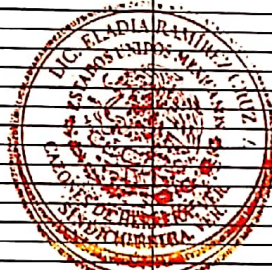 LIC. ELADIA RAMÍREZ CRUZ
ESTADOS UNIDOS MEXICANOS
CAZONES DE